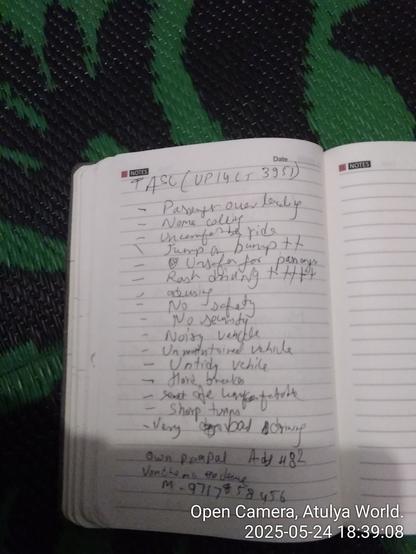 Date
NOTES
NOTES
TASC (UP14 CT 3951)
- Passenger over loading
- Name calling
- Uncomfortable ride
- Jump a bump ++
- Unsafe for passenger
- Rash driving +++++
- abusing
- No safety
- No security
- Noisy vehicle
- Unmaintained vehicle
- Untidy vehicle
- Hard breaks
- seat are uncomfortable
- Sharp turns
- Very bad driving
own
M - 9717858456
Open Camera, Atulya World.
2025-05-24 18:39:08